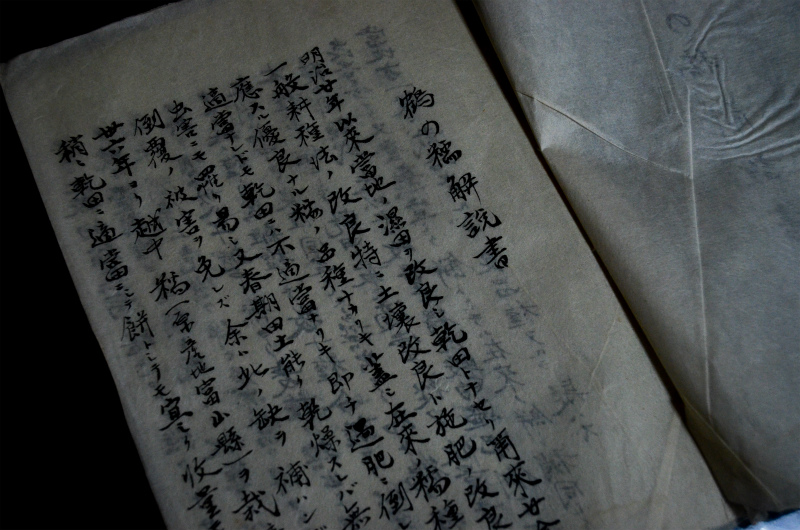 鶴の糯解説書
明治廿年以来當地ノ濕田ヲ改良シ乾田トナセリ甬来廿余
一般耕種法ノ改良特ニ土壌改良ト施肥ノ改良
應スル優良ナル糯ノ品種ナカリキ蓋シ在来ノ糯種
適當ナレドモ乾田ニハ不適當ナリキ即チ過肥ニ倒レ
虫害ニモ罹リ易シ又春期田土能ク乾燥スレバ無
倒覆ノ被害ヲ免レズ余ハ此ノ缺ヲ補ハン
廿六年ヨリ越中糯(原産地富山縣)ヲ栽
稍々乾田ニ適當ニシテ餅トシテモ宜シク收量